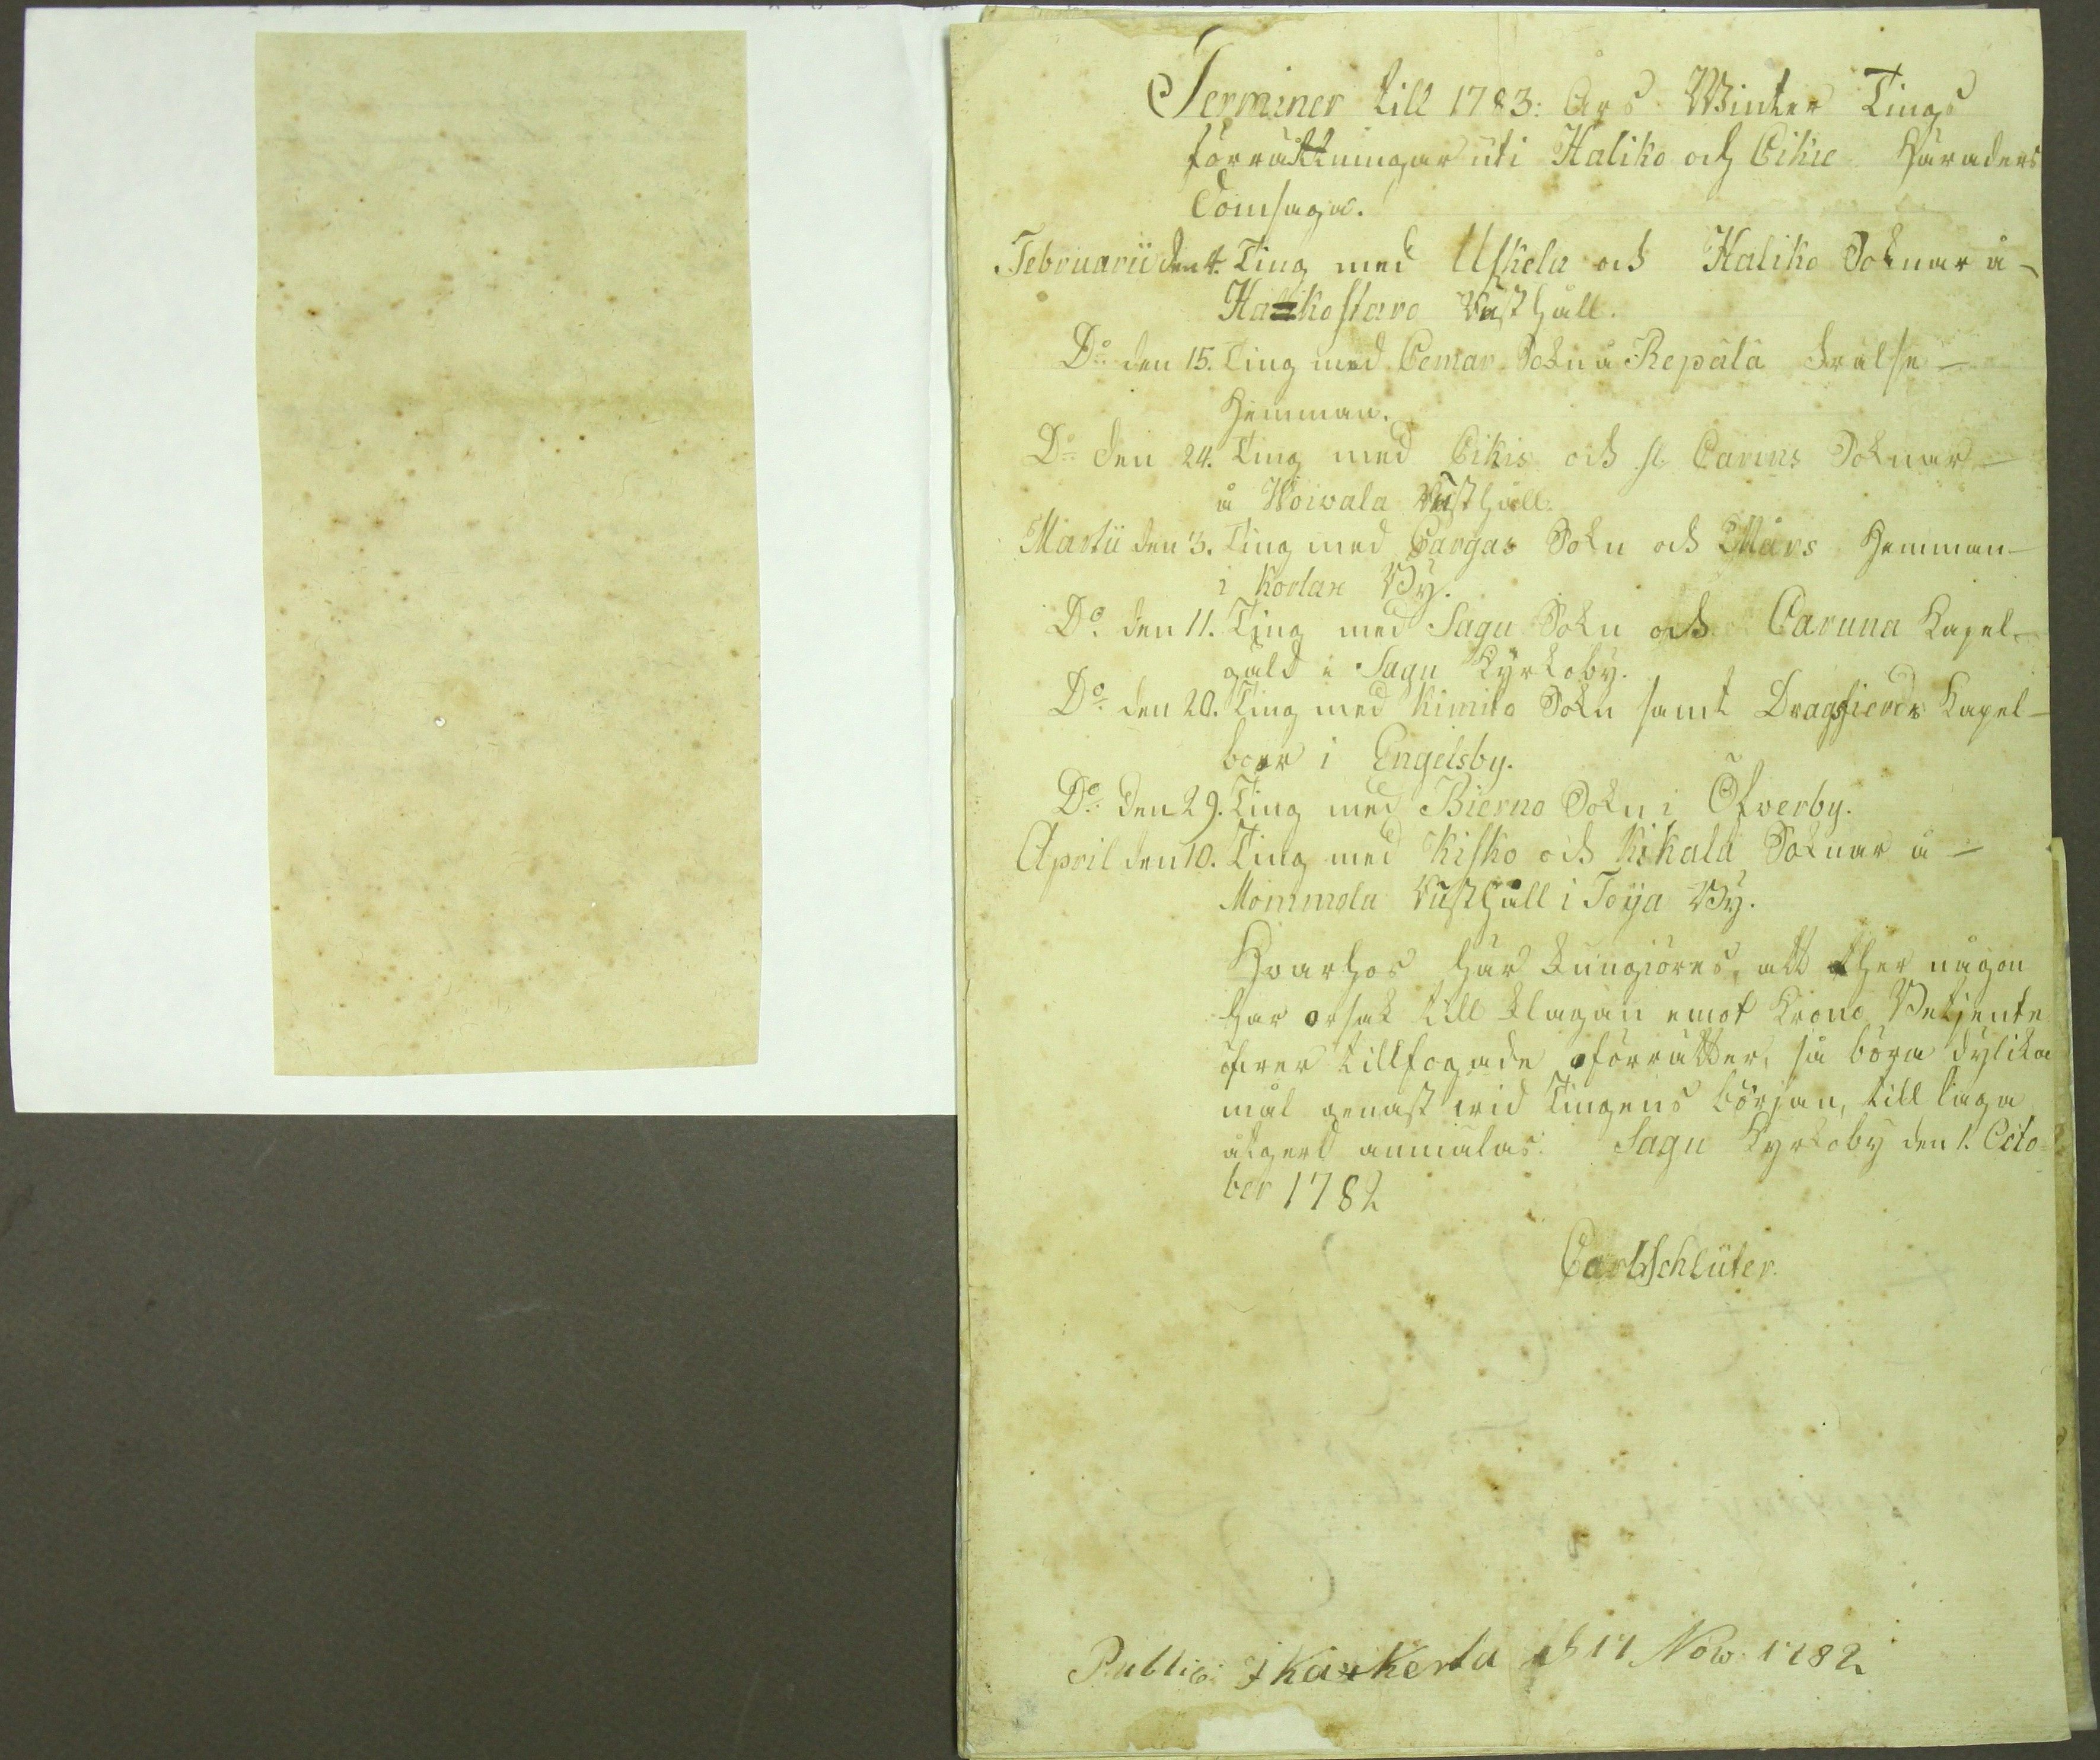 Terminer till 1783: Års Winter Tings
förrättningar uti Haliko och Pikie Häraders
Domsaga.
Februarii den 4. Ting med Uskela och Haliko Soknar å
Hakostaro Rusthåll.
Do den 15. Ting med Pemar Sokn å Repala frälse
Hemman.
Do den 24. Ting med Pikis och St. Carins Soknar
å Woivala Rusthåll.
Martii den 3. Ting med Pargas Sokn och Mårs Hemman
i Korlax By.
Do. den 11. Ting med Sagu Sokn och Caruna Kapel
gäld i Sagu Kyrkoby.
Do. den 20. Ting med Kimito Sokn samt Dragsfierds Kapel
boer i Engelsby.
Do. den 29. Ting med Bierno Sokn i Öfwerby.
April den 10. Ting med Kisko och Kikala Soknar å
Mommola Rusthåll i Toija By.
Hvarhos här kungiöres, att ther någon
har orsak till klagan emot Krono Betjente
öfwer tillfogade oförrätter, så böra dylika
mål genast wid Tingens början, till laga
åtgerd anmälas. Sagu Kyrkoby den 1. Octo
ber 1782
Carl Schlüter.
Public: i Kaxkerta d 17 Now: 1782